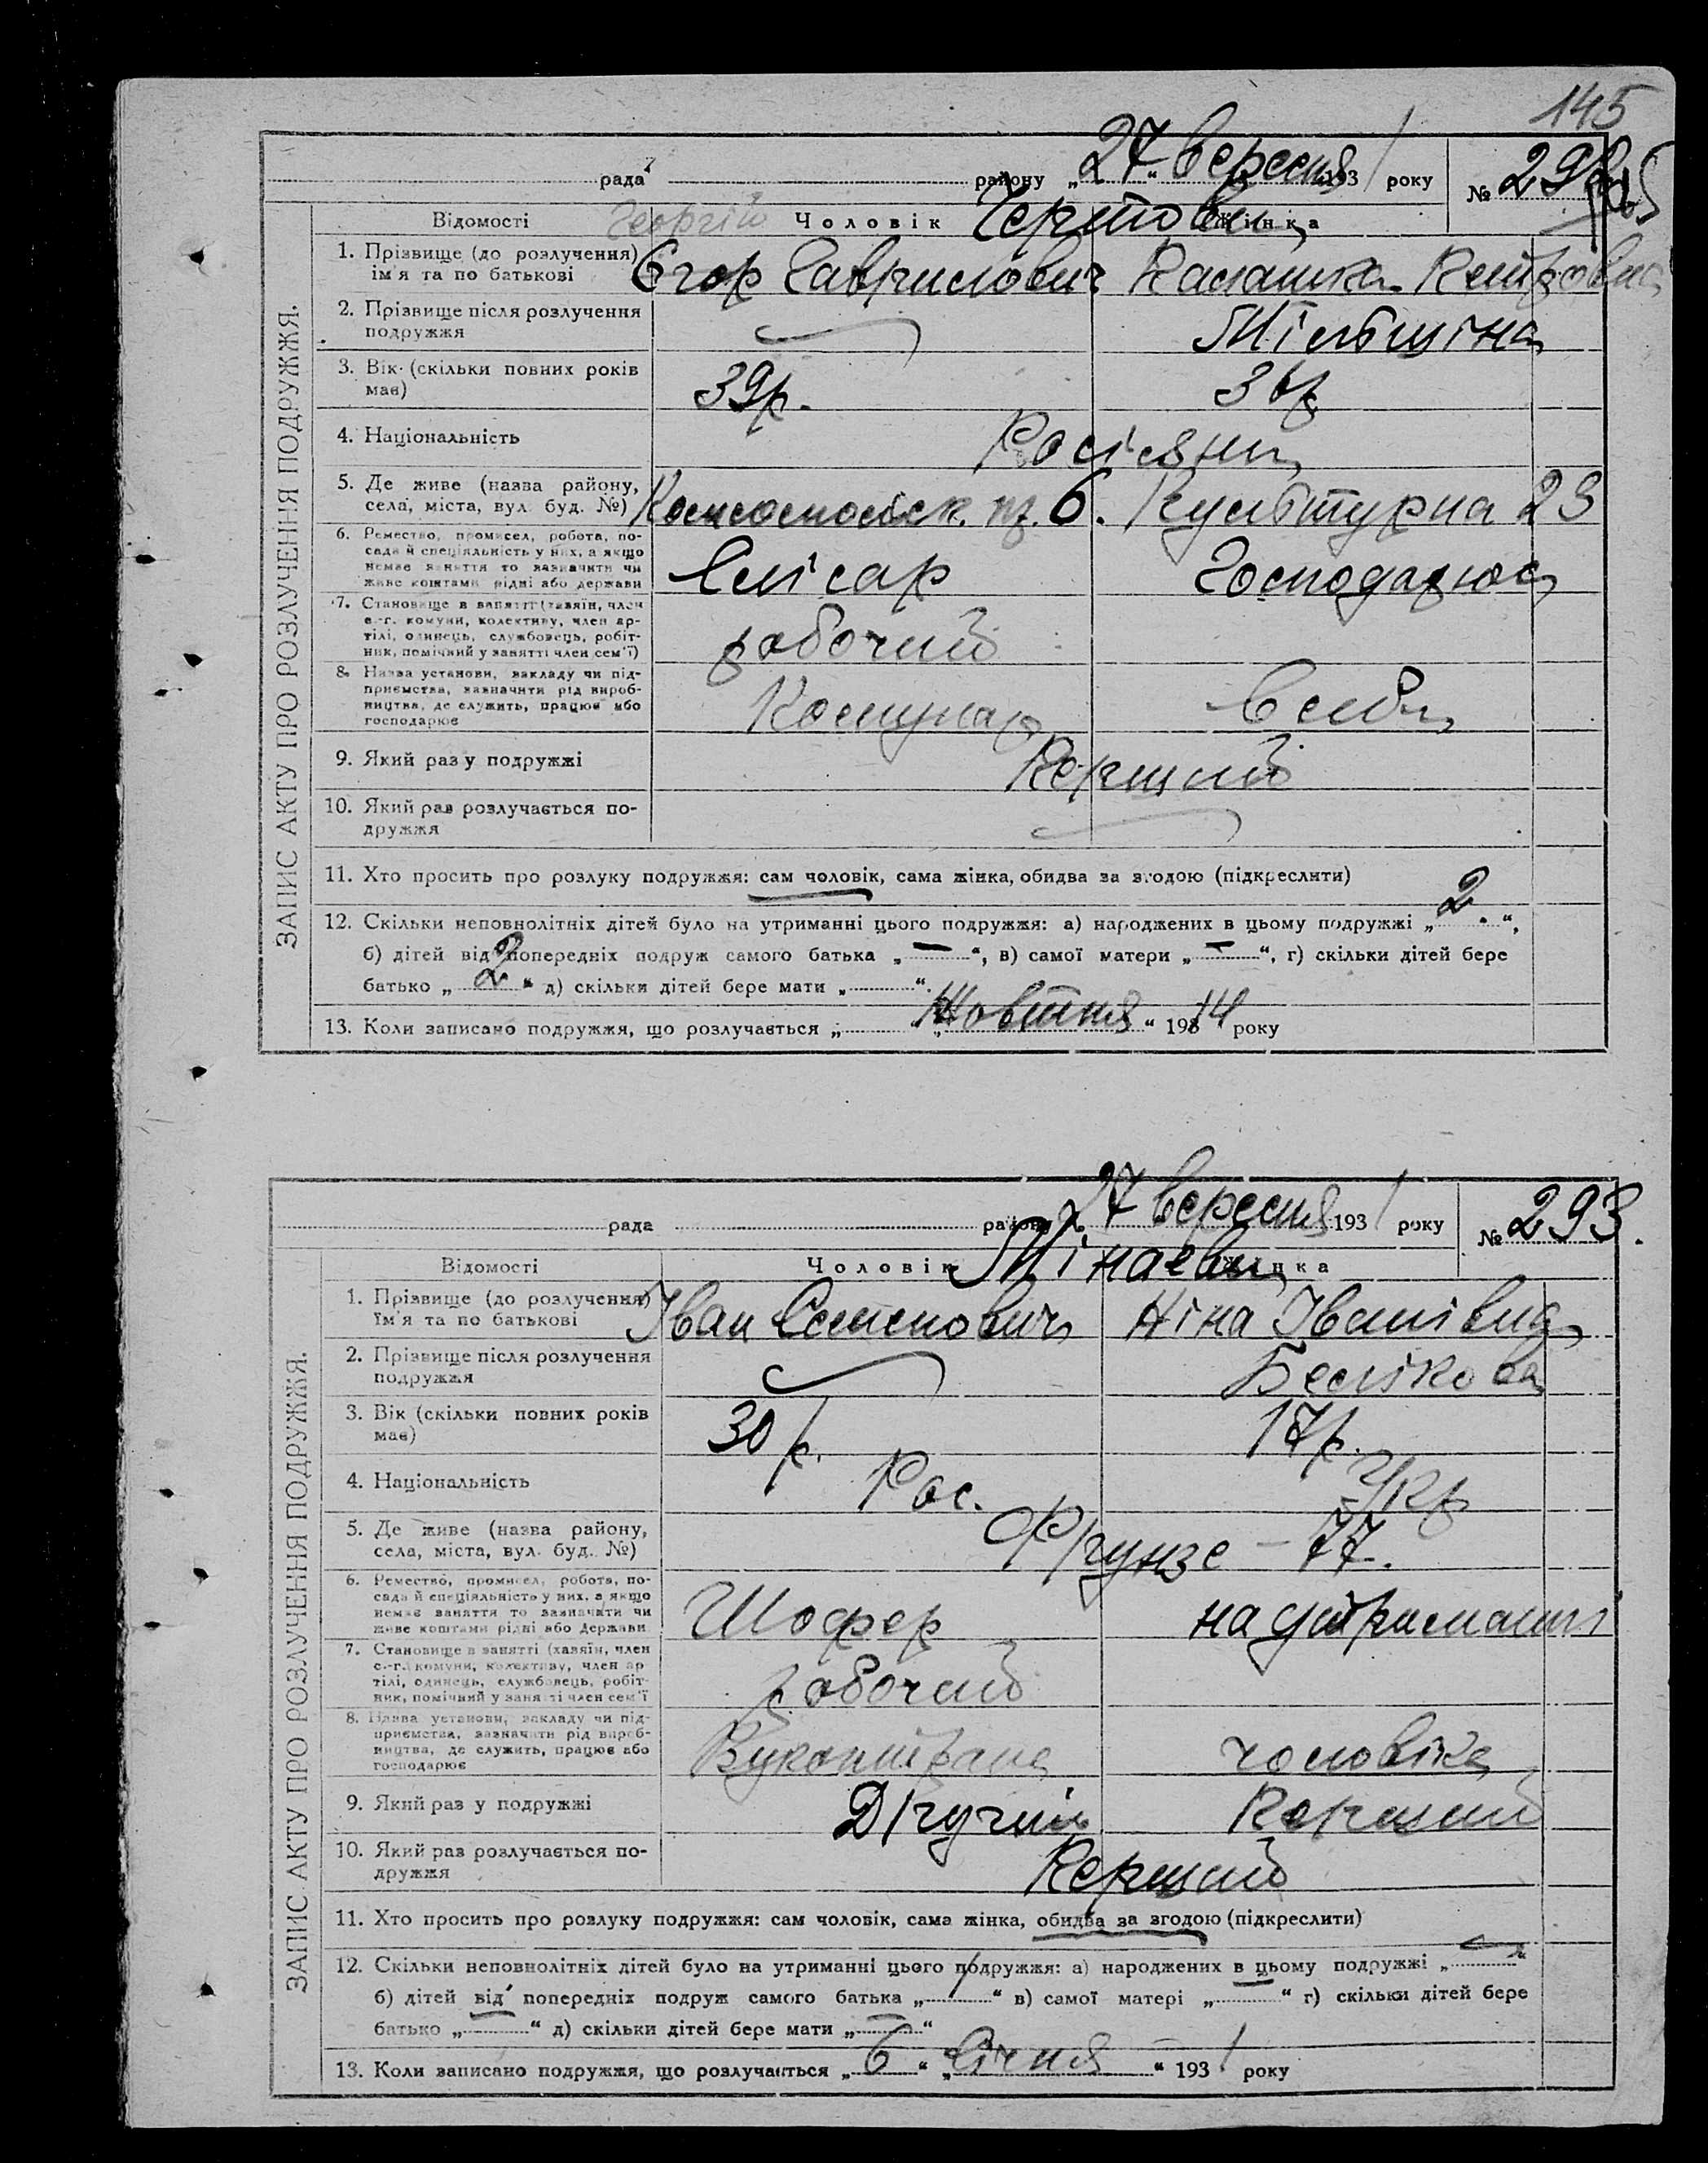 145
рада района „27“ вересня 1931 року № 292
Відомості Георгій Чоловік Чертови Жінка
ЗАПИС АКТУ ПРО РОЗЛУЧЕННЯ ПОДРУЖЖЯ.
1. Прізвище (до розлучення) ім'я та по батькові Єгор Гаврилович Петровна
2. Прізвище після розлучення подружжя Мільшіна
3. Вік (скільки повних років має) 39р.
4. Національність Росіяни
5. Де живе (назва району, села, міста, вул. буд. №) Комсомольск. 6. Культурна 23
6. Ремество, промисел, робота, посада й спеціяльність у них, а якщо немає заняття то зазначити чи живе коштами рідні або держави Слісар Господарює
7. Становище в занятті (хазяїн, член с.-г. комуни, колективу, член артілі, одинець, службовець, робітник, помічний у занятті член сем'ї) робочий
8. Назва установи, закладу чи підприємства, зазначити рід виробництва, де служить, працює або господарює Комунар в себе
9. Який раз у подружжі Перший
10. Який раз розлучається подружжя
11. Хто просить про розлуку подружжя: сам чоловік, сама жінка, обидва за згодою (підкреслити)
12. Скільки неповнолітніх дітей було на утриманні цього подружжя: а) народжених в цьому подружжі „2“,
б) дітей від попередніх подруж самого батька „—“, в) самої матери „—“, г) скільки дітей бере
батько „2“ д) скільки дітей бере мати „ “.
13. Коли записано подружжя, що розлучається „ “ „Жовтня“ 1914 року
рада району „27 вересня 1931 року № 293.
Відомості Чоловік Мінаєви Жінка
ЗАПИС АКТУ ПРО РОЗЛУЧЕННЯ ПОДРУЖЖЯ.
1. Прізвище (до розлучення) ім'я та по батькові Іван Семенович Ніна Іванівна
2. Прізвище після розлучення подружжя Белікова
3. Вік (скільки повних років має) 30 р. 17р.
4. Національність Рос. Укр
5. Де живе (назва району, села, міста, вул. буд. №) Фрунзе – 77.
6. Ремество, промисел, робота, посада й спеціяльність у них, а якщо немає заняття то зазначити чи живе коштами рідні або держави Шофер на утриманні
7. Становище в занятті (хазяїн, член с.-г. комуни, колективу, член артілі, одинець, службовець, робітник, помічний у занятті член сем'ї робочий
8. Назва установи, закладу чи підприємства, зазначити рід виробництва, де служить, працює або господарює чоловіка
9. Який раз у подружжі Другий Перший
10. Який раз розлучається подружжя Перший
11. Хто просить про розлуку подружжя: сам чоловік, сама жінка, обидва за згодою (підкреслити)
12. Скільки неповнолітніх дітей було на утриманні цього подружжя: а) народжених в цьому подружжі „—“
б) дітей від попередніх подруж самого батька „ “ в) самої матері „—“ г) скільки дітей бере
батько „—“ д) скільки дітей бере мати „—“
13. Коли записано подружжя, що розлучається „6“ „Січня“ 1931 року